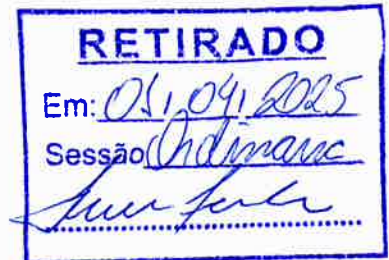 RETIRADO
Em: 01/04/2025
Sessão Ordinária